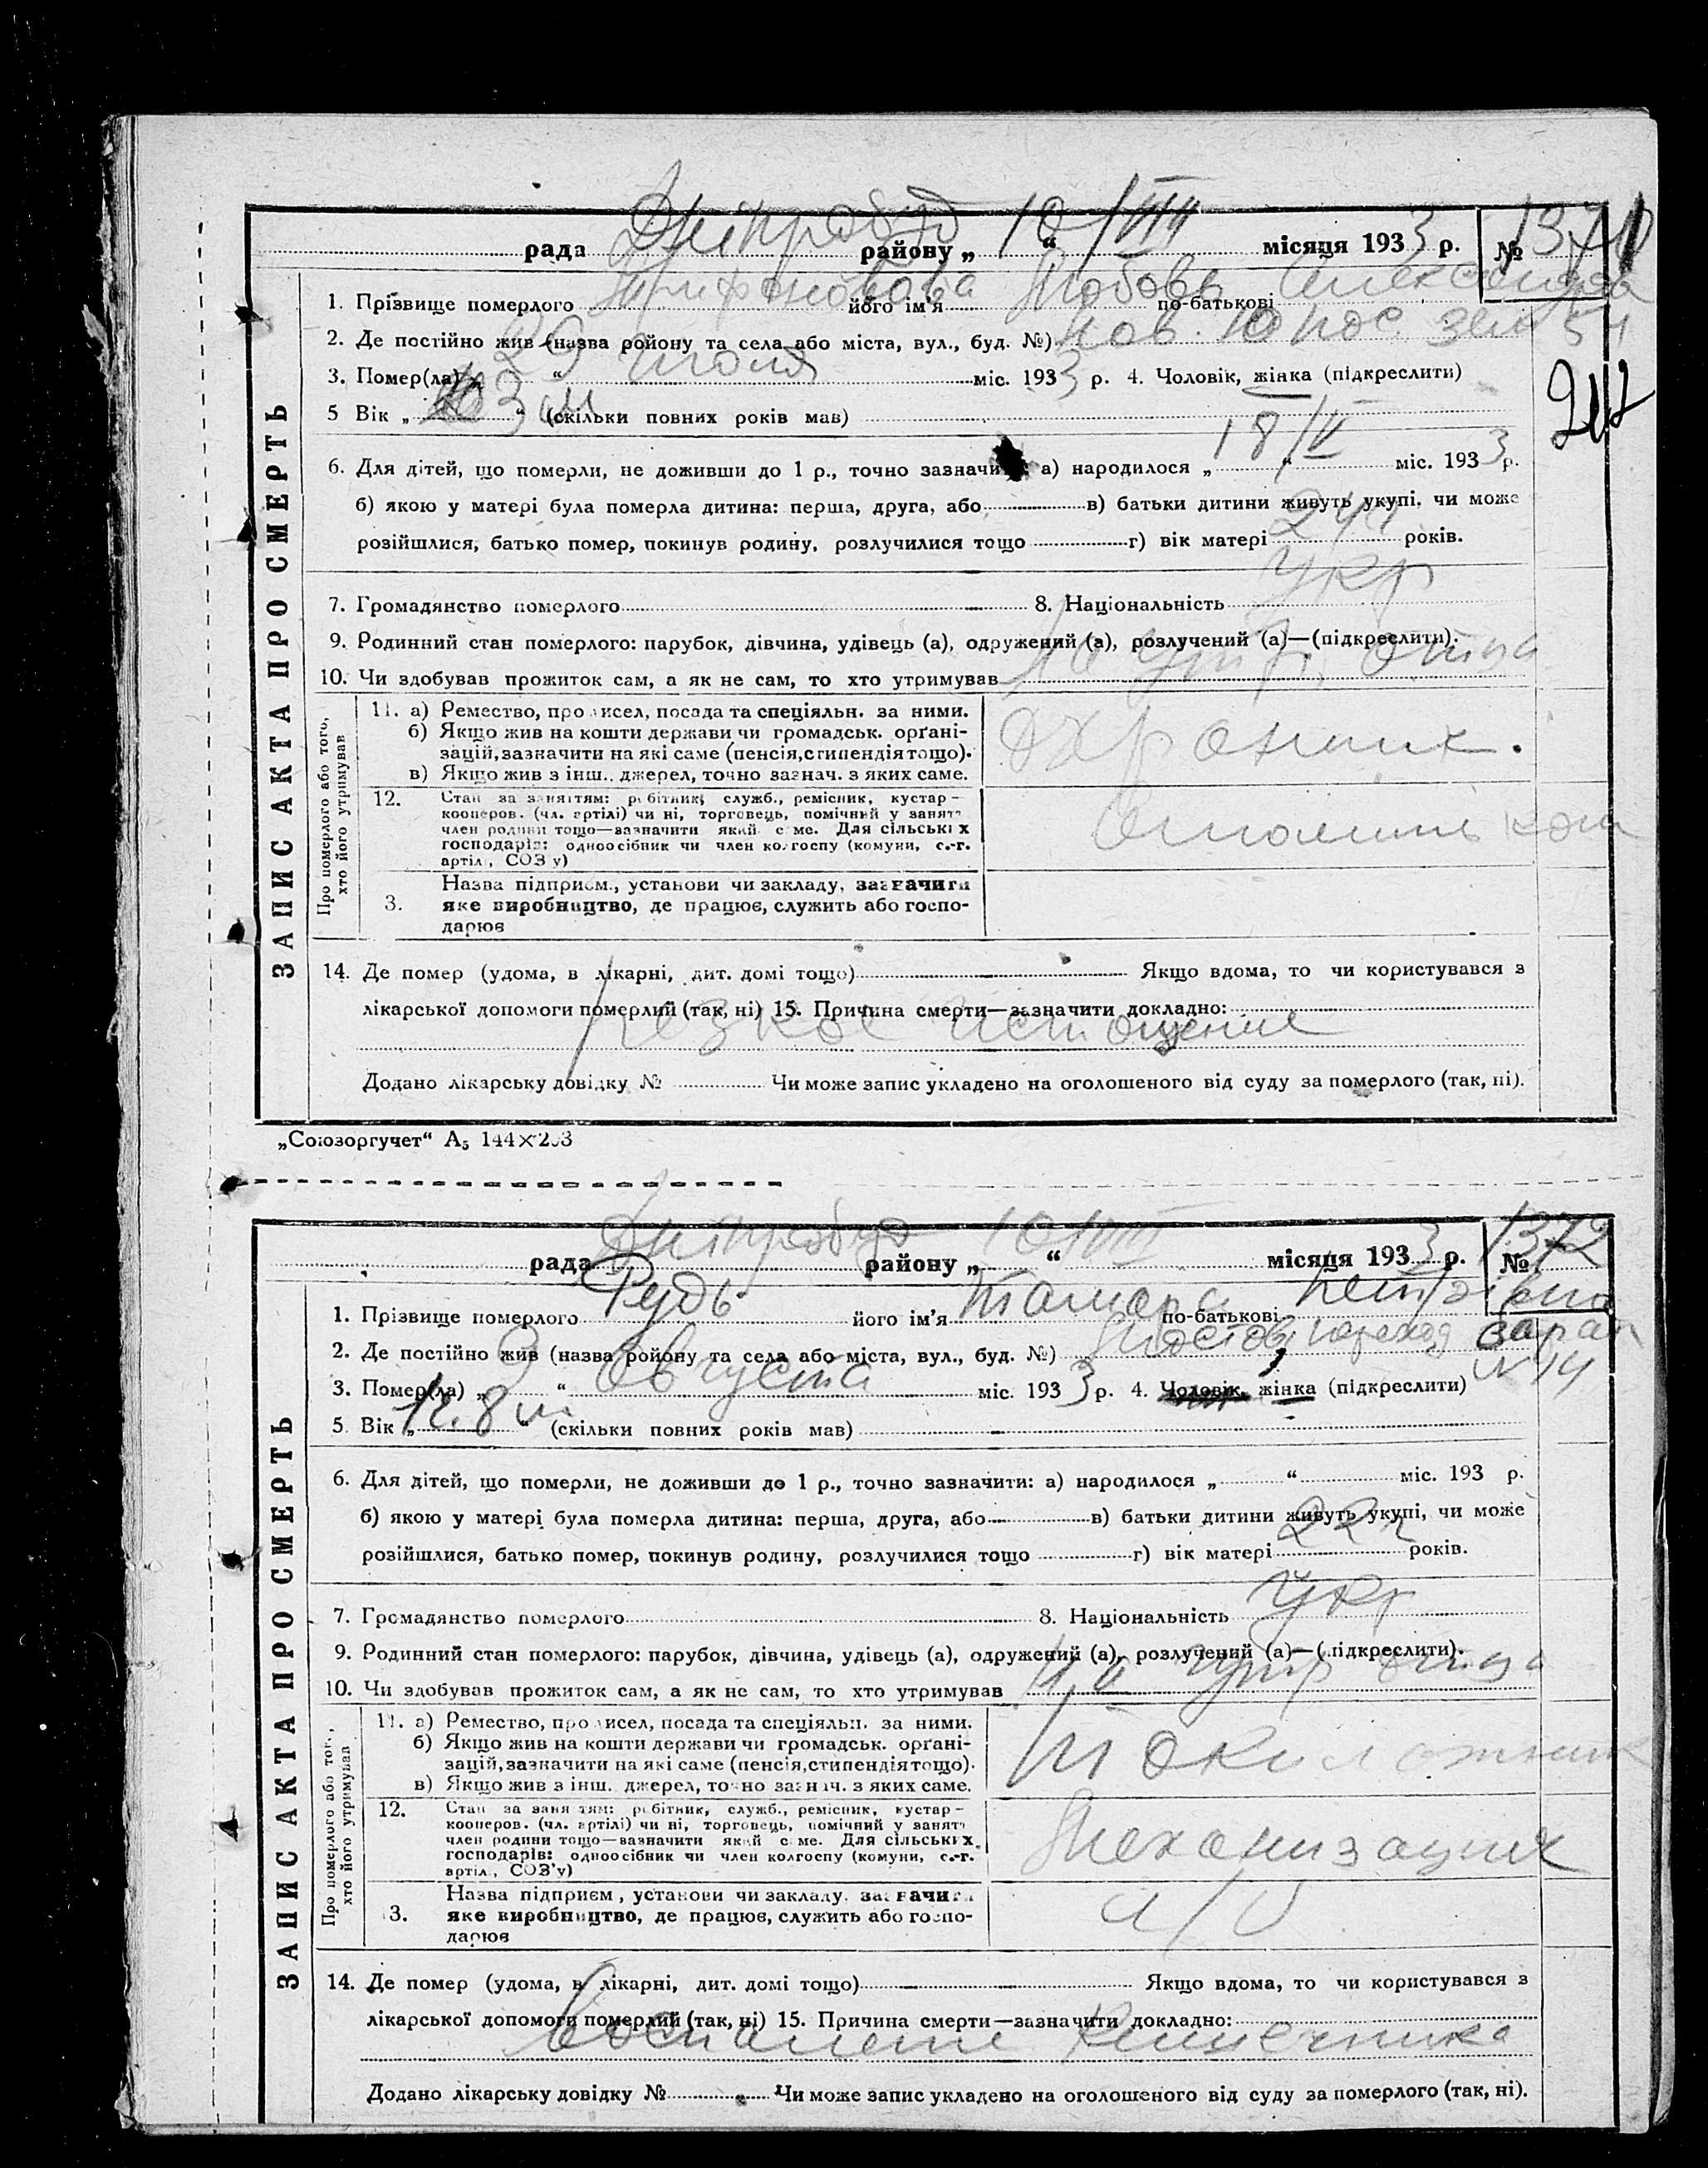 Дніпробуд 10/VIII № 1371
рада району „ “ місяця 1933 р.
ЗАПИС АКТА ПРО СМЕРТЬ
1. Прізвище померлого його ім'я Любовь по-батькові
2. Де постійно жив (назва ройону та села або міста, вул., буд. №)
3. Помер(ла) „29“ июля міс. 1933 р. 4. Чоловік, жінка (підкреслити)
5 Вік „ 3 м “ (скільки повних років мав)
212
6. Для дітей, що померли, не доживши до 1 р., точно зазначити: а) народилося „18“ IV міс. 1933 р.
б) якою у матері була померла дитина: перша, друга, або в) батьки дитини живуть укупі, чи може
розійшлися, батько помер, покинув родину, розлучилися тощо г) вік матері 24 років.
7. Громадянство померлого 8. Національність укр
9. Родинний стан померлого: парубок, дівчина, удівець (а), одружений (а), розлучений (а)—(підкреслити).
10. Чи здобував прожиток сам, а як не сам, то хто утримував отца
Про померлого або того, хто його утримував
11. а) Ремество, промисел, посада та спеціяльн. за ними.
б) Якщо жив на кошти держави чи громадськ. орґані-
зацій, зазначити на які саме (пенсія, стипендія тощо).
в) Якщо жив з інш. джерел, точно зазнач. з яких саме.
охранник.
12. Стан за заняттям: робітник, служб., ремісник, кустар—
кооперов. (чл. артілі) чи ні, торговець, помічний у занятт
член родини тощо—зазначити який саме. Для сільських
господарів: одноосібник чи член колгоспу (комуни, с.-г.
артілі, СОЗ'у)
Назва підприєм., установи чи закладу, зазначити
3. яке виробництво, де працює, служить або госпо-
дарює
14. Де помер (удома, в лікарні, дит. домі тощо) Якщо вдома, то чи користувався з
лікарської допомоги померлий (так, ні) 15. Причина смерти—зазначити докладно:
Резкое истощение
Додано лікарську довідку № Чи може запис укладено на оголошеного від суду за померлого (так, ні).
„Союзоргучет“ А₅ 144×203
Дніпробуд 10/VIII № 1372
рада району „ “ місяця 1933 р.
ЗАПИС АКТА ПРО СМЕРТЬ
1. Прізвище померлого Рудь його ім'я Тамара по-батькові Петрівна
2. Де постійно жив (назва ройону та села або міста, вул., буд. №) барак
№ 14
3. Помер(ла) „3“ Августа міс. 1933 р. 4. Чоловік, жінка (підкреслити)
5 Вік „1г. 8 м“ (скільки повних років мав)
6. Для дітей, що померли, не доживши до 1 р., точно зазначити: а) народилося „ “ міс. 193 р.
б) якою у матері була померла дитина: перша, друга, або в) батьки дитини живуть укупі, чи може
розійшлися, батько помер, покинув родину, розлучилися тощо г) вік матері 22 років.
7. Громадянство померлого 8. Національність укр
9. Родинний стан померлого: парубок, дівчина, удівець (а), одружений (а), розлучений (а)—(підкреслити).
10. Чи здобував прожиток сам, а як не сам, то хто утримував отца
Про померлого або того, хто його утримував
11. а) Ремество, промисел, посада та спеціяльн. за ними.
б) Якщо жив на кошти держави чи громадськ. орґані-
зацій, зазначити на які саме (пенсія, стипендія тощо).
в) Якщо жив з інш. джерел, точно зазнач. з яких саме.
12. Стан за заняттям: робітник, служб., ремісник, кустар—
кооперов. (чл. артілі) чи ні, торговець, помічний у занятт
член родини тощо—зазначити який саме. Для сільських
господарів: одноосібник чи член колгоспу (комуни, с.-г.
артіл., СОЗ'у)
Механизация
Назва підприєм, установи чи закладу, зазначити
3. яке виробництво, де працює, служить або госпо-
дарює
14. Де помер (удома, в лікарні, дит. домі тощо) Якщо вдома, то чи користувався з
лікарської допомоги померлий (так, ні) 15. Причина смерти—зазначити докладно:
Воспаление кишечника
Додано лікарську довідку № Чи може запис укладено на оголошеного від суду за померлого (так, ні).